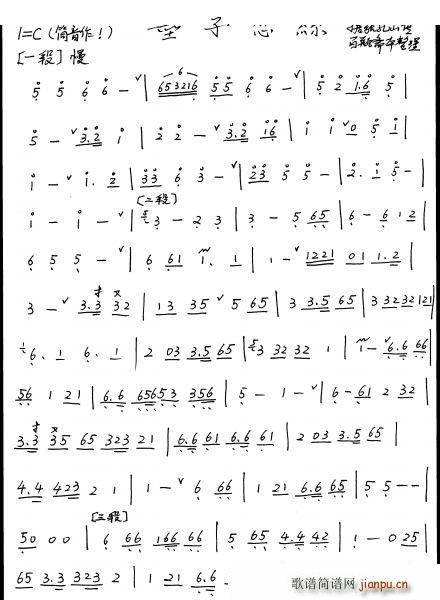 1=C (筒音作1) 墨子悲丝
[一段] 慢
5 5 6 6 - ∨ | 653216 5 5 6 6 - ∨ | 5 2 1.6 5
5 - ∨ 3.2 1 | 2 2 - ∨ 3.2 16 | 1 1 ∨ 0 5 1
1 - ∨ 1. 2 | 33 6 3 - ∨ | 23 5 5 - | 2. 1 5 -
[二段]
1 - 1 - ∨ | 3 - 2 3 | 3 - 5 65 | 6 - 6 . 1 2 |
6 5 5 - ∨ | 6 61 1. 1 | 1 - ∨ 1221 01 1.2 |
3 - ∨ 3.3 32 | 13 35 ∨ 5 65 | 3 3.5 65 | 3 32 32 121 |
6. 1 6. 1 | 2 03 3.5 65 | 3 32 32 1 | 1 - ∨ 6.6 66
56 1 21 | 6.6 6565 3 356 | 5 - 1 - ∨ | 6 - 61 2 32 |
3.3 35 65 323 21 | 6.6 61 6.6 61 | 2 03 3.5 65 |
4.4 423 2 1 | 1 - ∨ 6 66 | 1 21 6.6 65 | 5 5 - - |
[三段]
50 0 0 | 6 66 166 66 | 5 65 4.4 42 | 1 - 0 25 |
65 3.3 323 2 | 1 21 6.6 -
歌谱简谱网
jianpu.cn